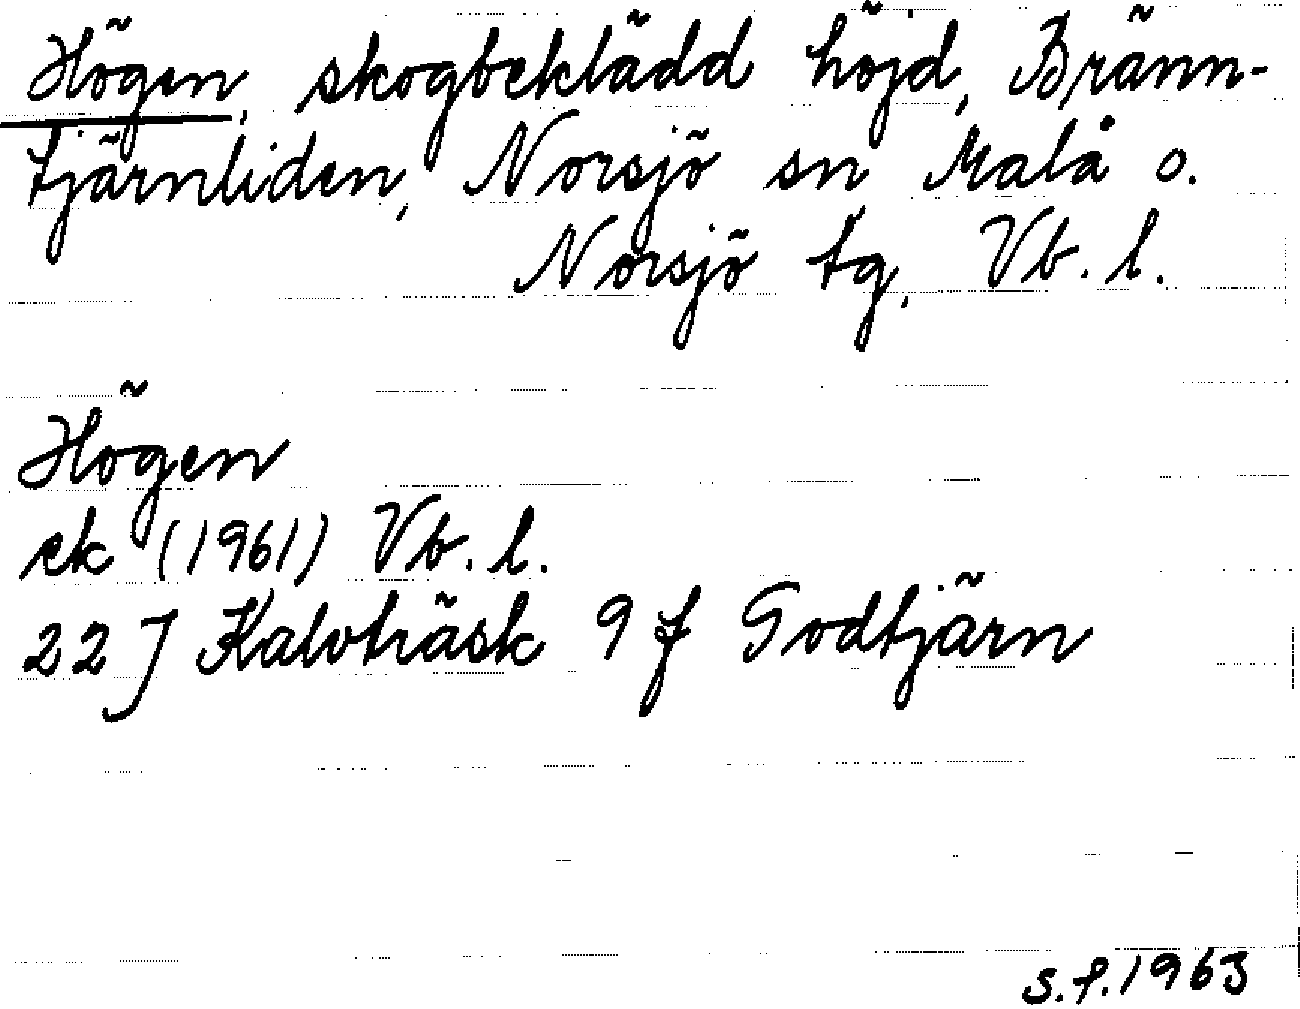 Högen, skogbeklädd höjd, Bränn-
tjärnliden, Norsjö sn Malå o.
Norsjö tg, Vb. l.
Högen
ek (1961) Vb. l.
22 J Kalvträsk 9 f Godtjärn
S.f. 1963